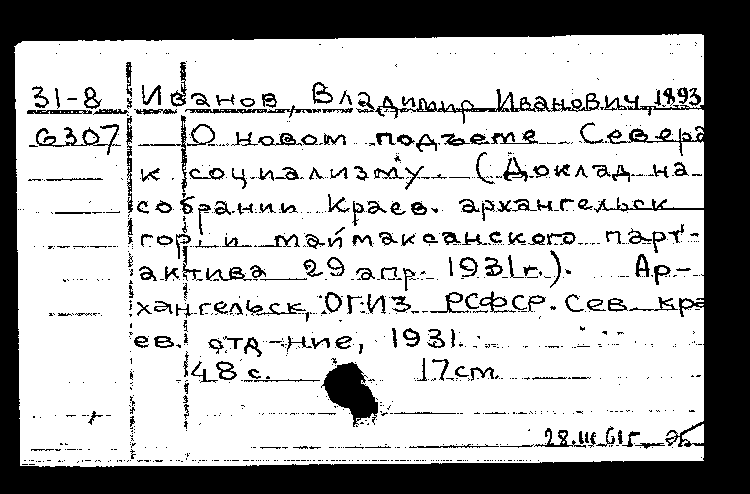 31-8 Иванов, Владимир Иванович, 1893
G307 О новом подъеме Севера
к социализму. (Доклад на
собрании Краев. архангельск
гор. и маймаксанского парт-
актива 29 апр. 1931г.). Ар-
хангельск, ОГИЗ РСФСР. Сев. кра
ев. отд-ние, 1931.
48 с. 17 см
28.III.61г. ЭБ